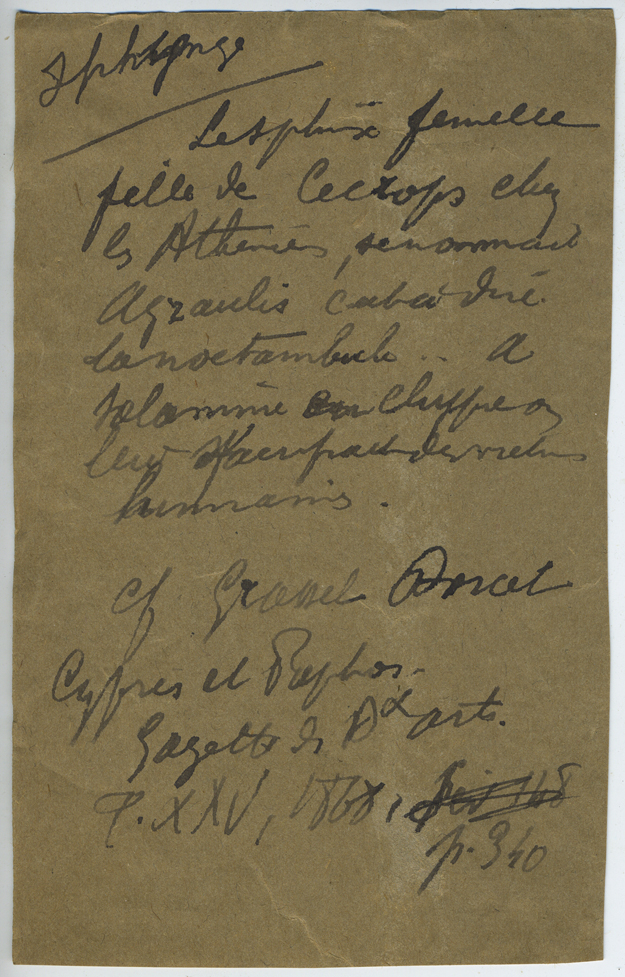 Le sphinx femelle
fille de Cecrops chez
les Athéniens, se nommait
Agraulis c'est à dire
la noctambule .. A
Salamine en Chypre on
leur sacrifiait des victimes
humaines .
cf Grasset
Cypres et Paphos.
Gazette des Bx arts.
T. XXV, 1868,
p. 340